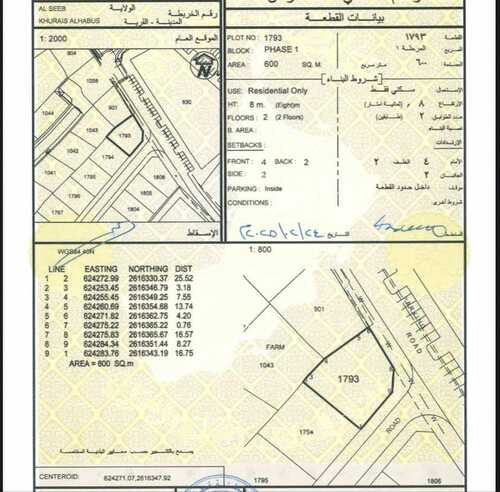 AL SEEB
KHURAIS ALHABUS
الولاية
رقم الخريطة
المدينة - القرية
1: 2000
الموقع العام
901
1044
1043
1793
1794
1795
1806
1792
الإسقاط
بيانات القطعة
PLOT NO: 1793 ١٧٩٣ القطعة
BLOCK: PHASE 1 المرحلة ١ المربع
AREA: 600 SQ. M ٦٠٠ المساحة
شروط البناء
USE: Residential Only سكني فقط الاستعمال
HT: 8 m. (Eight)m ٨ م (ثمانية امتار) الارتفاع
FLOORS: 2 (2 Floors) ٢ (طابقين) عدد الطوابق
B. AREA: نسبة البناء
SETBACKS: الارتدادات
FRONT: 4 BACK: 2 ٢ الخلف ٤ الأمام
SIDE: 2 ٢ الجانبان
PARKING: Inside داخل حدود القطعة موقف
CONDITIONS: شروط أخرى
WGS84 40N
1: 800
LINE EASTING NORTHING DIST
1 2 624272.99 2616330.37 25.52
2 3 624253.45 2616346.79 3.18
3 4 624255.45 2616349.25 7.55
4 5 624260.69 2616354.68 13.74
5 6 624271.82 2616362.75 4.20
6 7 624275.22 2616365.22 0.76
7 8 624275.83 2616365.67 16.57
8 9 624284.34 2616351.44 8.27
9 1 624283.76 2616343.19 16.75
AREA = 600 SQ.m
901
FARM
1043
1793
1794
PARKING
ROAD
ROAD
يسمح بالتشجير حسب معايير البلدية المختصة
CENTEROID: 624271.07,2616347.92
1795
1806